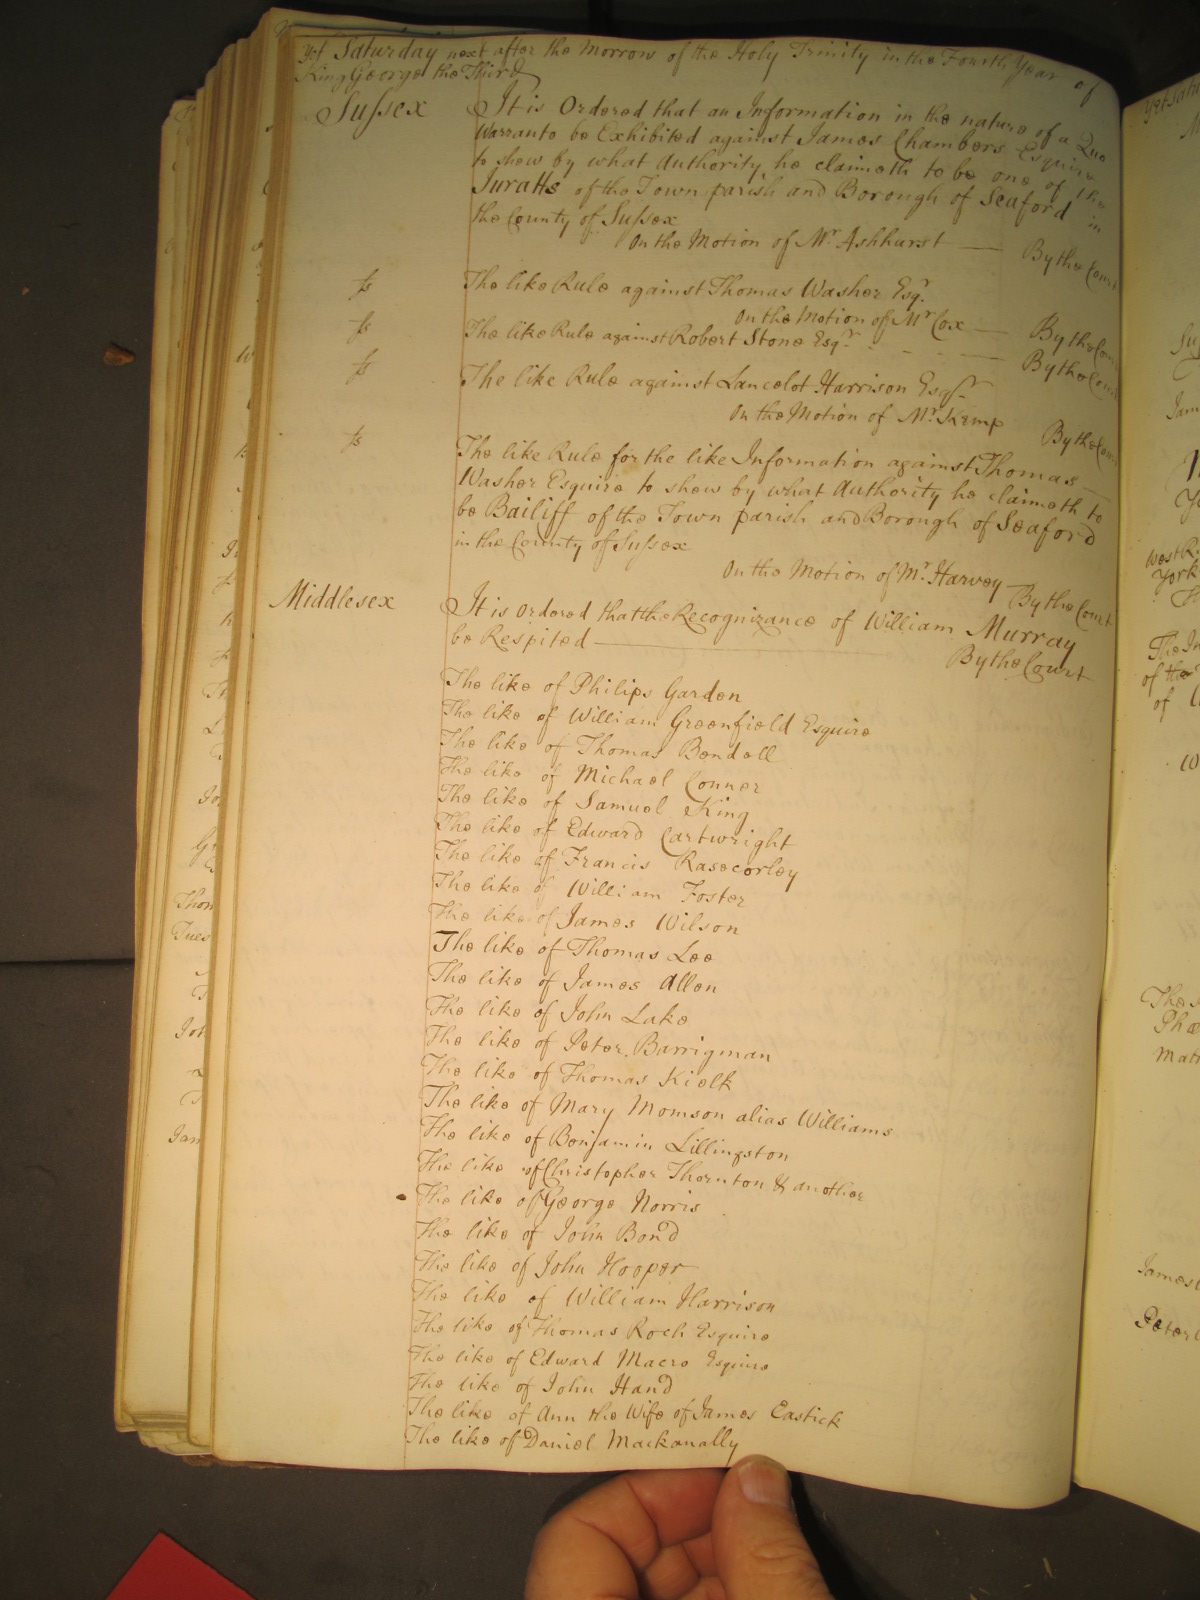 Yet Saturday next after the Morrow of the Holy Trinity in the Fourth Year of
King George the Third
Sussex It is Ordered that an Information in the nature of a Quo
Warranto be Exhibited against James Chambers Esquire
to shew by what Authority he claimeth to be one of the
Juratts of the Town parish and Borough of Seaford in
the County of Sussex
On the Motion of Mr. Ashhurst — By the Court
fs The like Rule against Thomas Washer Esqr.
On the Motion of Mr Cox — By the Court
fs The like Rule against Robert Stone Esqr. — By the Court
fs The like Rule against Lancelot Harrison Esqr.
On the Motion of Mr. Kemp By the Court
fs The like Rule for the like Information against Thomas —
Washer Esquire to shew by what Authority he claimeth to
be Bailiff of the Town parish and Borough of Seaford
in the County of Sussex
On the Motion of Mr. Harvey By the Court
Middlesex It is ordered that the Recognizance of William Murray
be Respited — By the Court
The like of Philips Garden
The like of William Greenfield Esquire
The like of Thomas Bendall
The like of Michael Conner
The like of Samuel King
The like of Edward Cartwright
The like of Francis Rasecorley
The like of William Foster
The like of James Wilson
The like of Thomas Lee
The like of James Allen
The like of John Lake
The like of Peter Barrigman
The like of Thomas Kielk
The like of Mary Momson alias Williams
The like of Benjamin Lillingston
The like of Christopher Thornton & another
The like of George Norris
The like of John Bond
The like of John Hooper
The like of William Harrison
The like of Thomas Roch Esquire
The like of Edward Macro Esquire
The like of John Hand
The like of Ann the Wife of James Eastick
The like of Daniel Mackanally